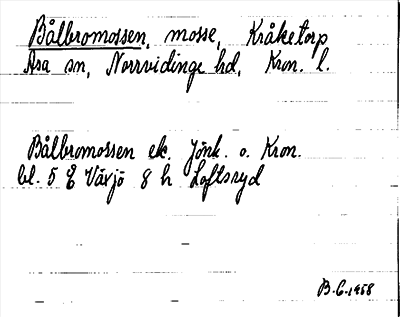 Bålbromossen, mosse, Kråketorp
Asa sn, Norrvidinge hd, Kron. l.
Bålbromossen ek. Jönk. o. Kron.
bl. 5 Ö Växjö 8 h Loftsryd
B.G. 1958